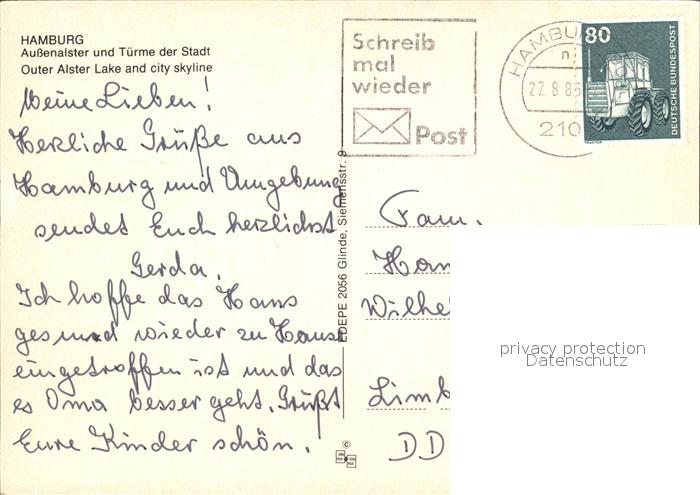 HAMBURG
Außenalster und Türme der Stadt
Outer Alster Lake and city skyline
Meine Lieben!
Herzliche Grüße aus
Hamburg und Umgebung
sendet Euch herzlichst
Gerda.
Ich hoffe das Hans
gesund wieder zu Hause
eingetroffen ist und das
es Oma besser geht. Grüßt
Eure Kinder schön.
EDEPE 2056 Glinde, Siemensstr. 9
©
Schreib
mal
wieder
Post
HAMBU
n
22.8.86
210
80
DEUTSCHE BUNDESPOST
TRAKTOR
Fam.
Han
Wilhe
Limb
DD
privacy protection
Datenschutz